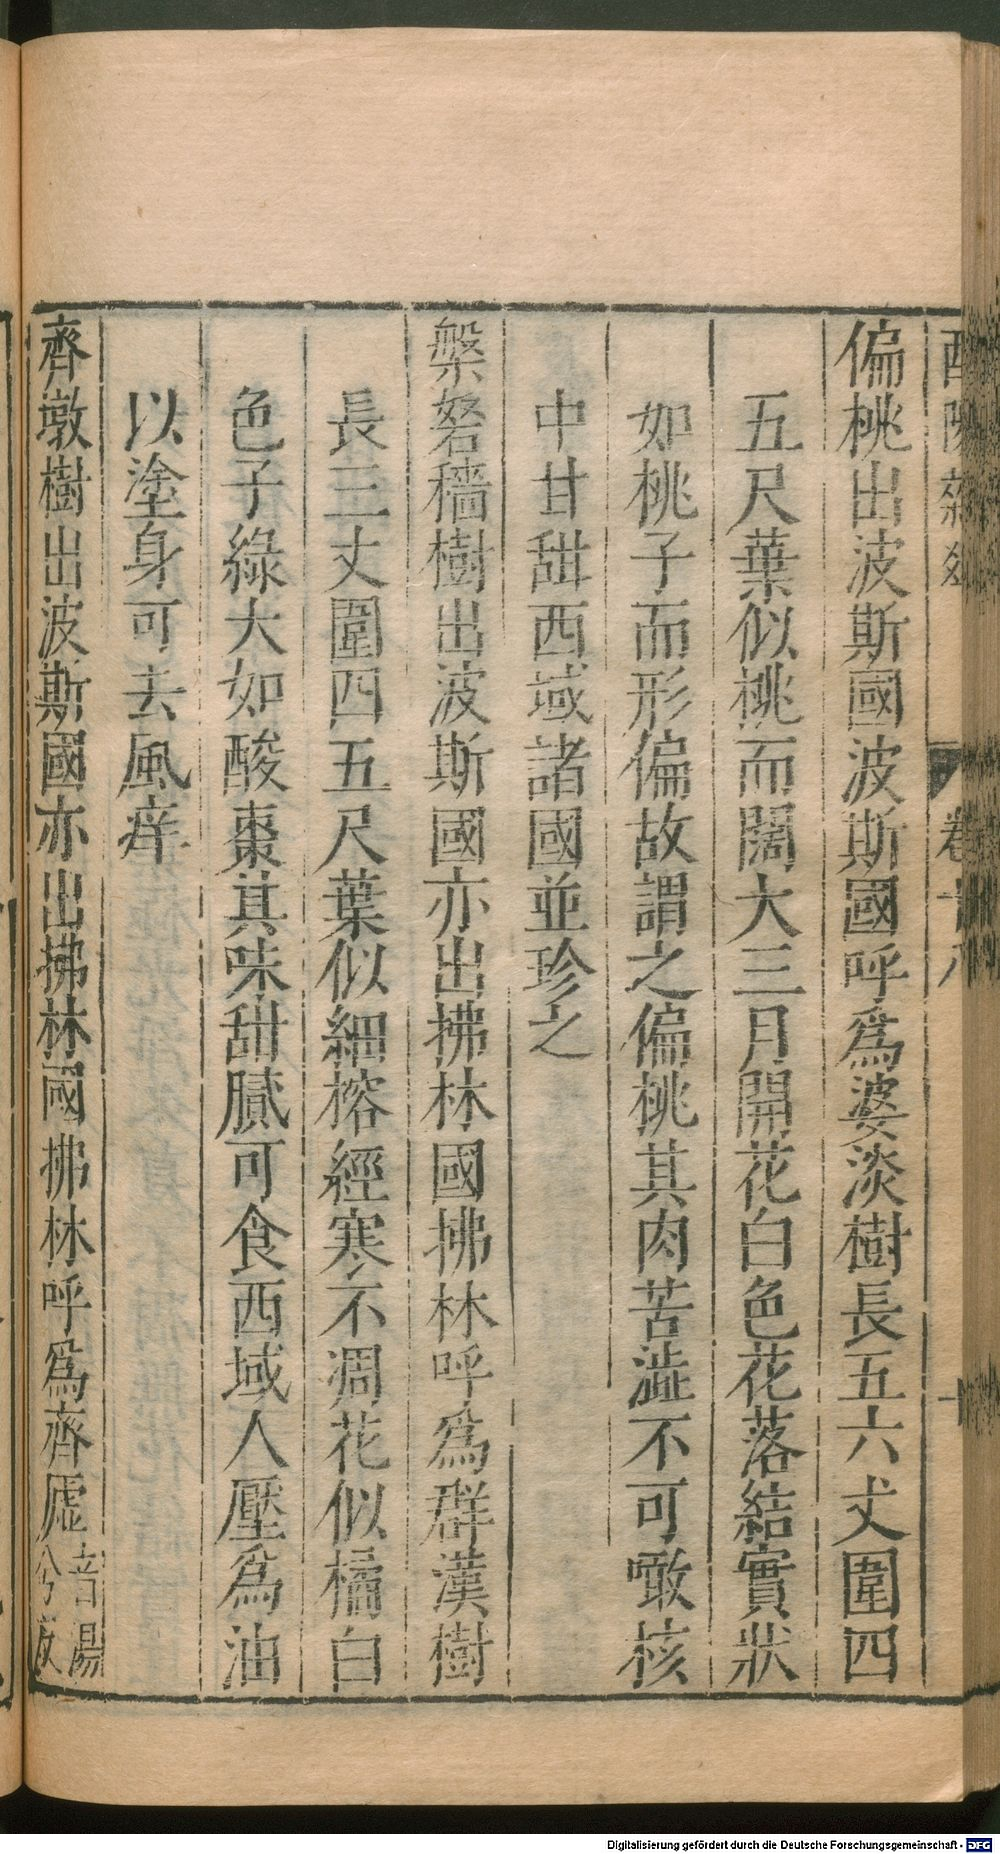 酉陽雜俎 卷十八 十
偏桃出波斯國波斯國呼爲婆淡樹長五六丈圍四
五尺葉似桃而闊大三月開花白色花落結實狀
如桃子而形偏故謂之偏桃其肉苦澁不可噉核
中甘甜西域諸國並珍之
槃砮穡樹出波斯國亦出拂林國拂林呼爲群漢樹
長三丈圍四五尺葉似細榕經寒不凋花似橘白
色子綠大如酸棗其味甜膩可食西域人壓爲油
以塗身可去風痒
齊墩樹出波斯國亦出拂林國拂林呼爲齊虒音湯兮反
Digitalisierung gefördert durch die Deutsche Forschungsgemeinschaft - DFG